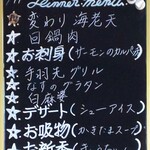 Dinner menu
変わり海老天
回鍋肉
お刺身(サーモンのカルパ
手羽元グリル
なすのグラタン
白麻婆
デザート(シューアイス)
お吸物(かきたまスープ
お新香